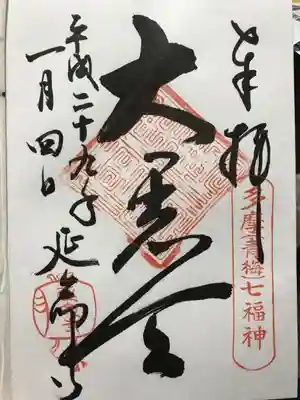 奉拝
多摩青梅七福神
大黒天
平成二十九年
一月四日
延命寺